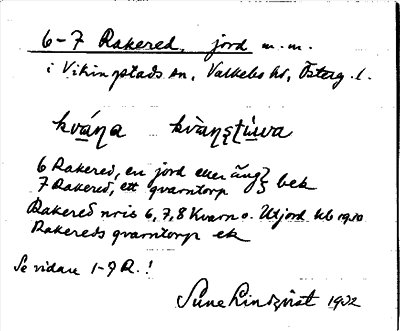 6-7 Rakered, jord m.m.
i Vikingstads sn, Valkebo hd, Österg. l.
kvá̱ŋa kvàŋʂtu̱wa
6 Rakered, en jord eller äng } bek
7 Rakered, ett qvarntorp
Rakered nris 6, 7, 8 Kvarn o. Utjord hb 1910
Rakereds qvarntorp ek
Se vidare 1-9 R.!
Sune Lindqvist 1902